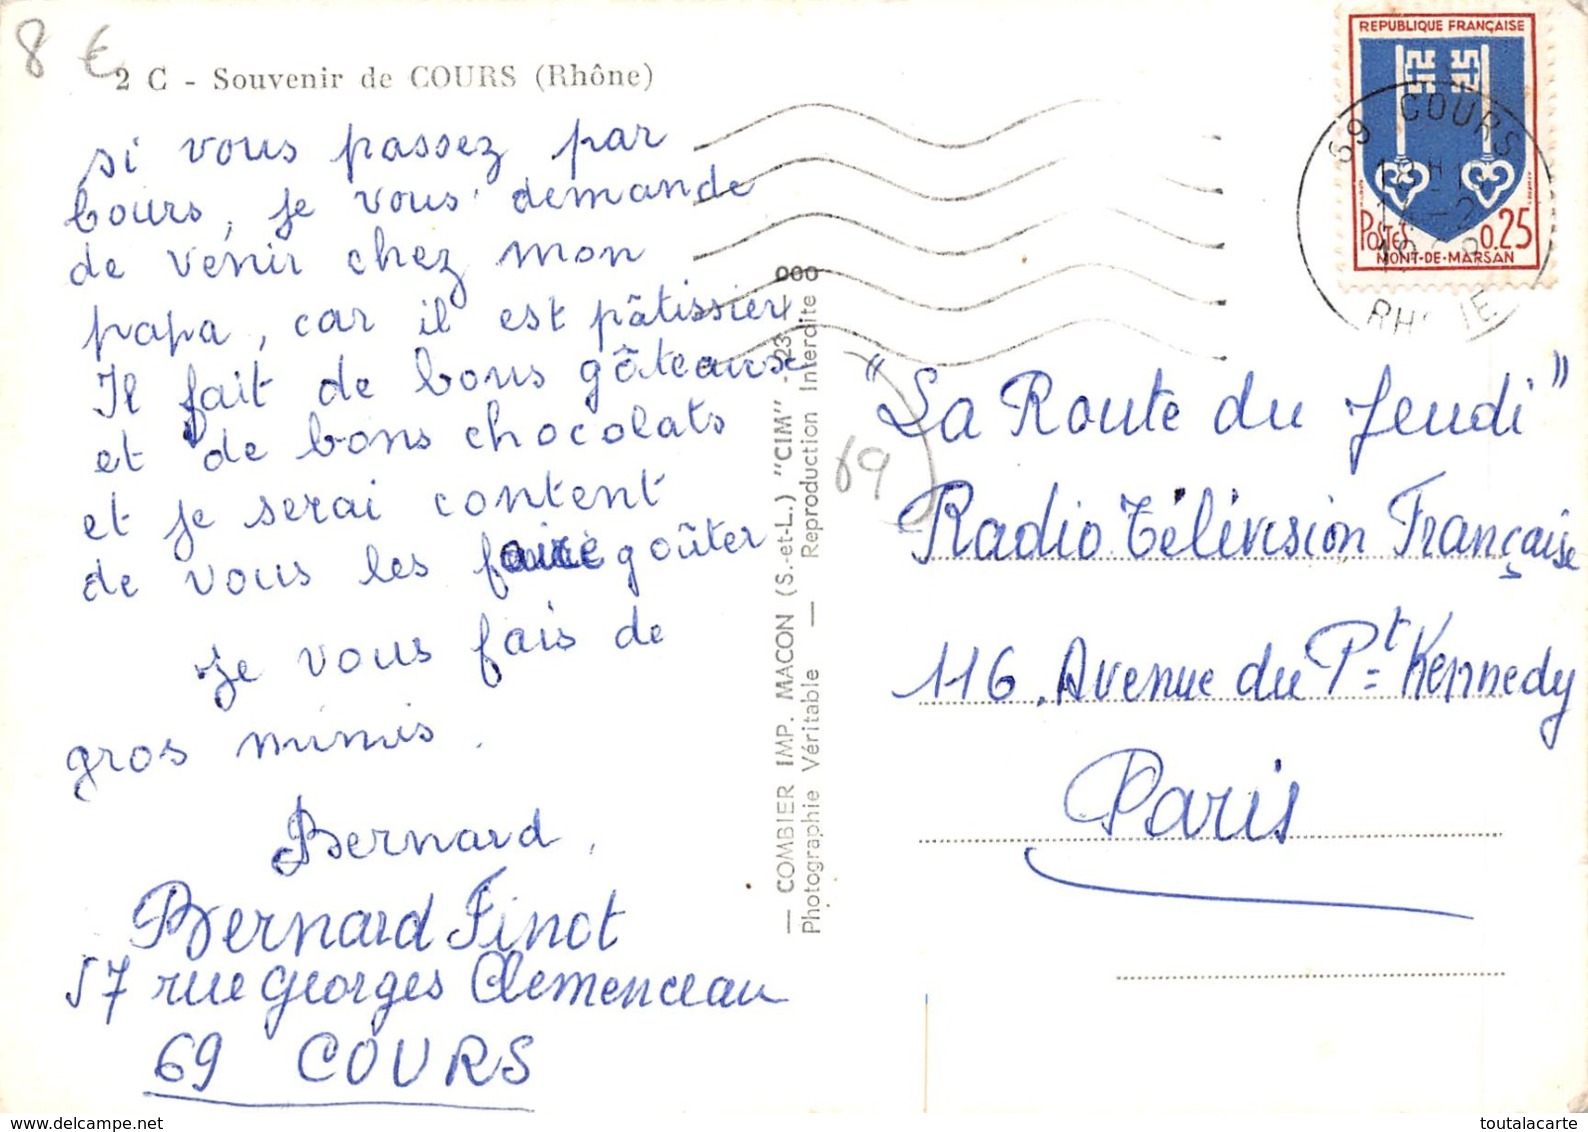 8 €
2 C - Souvenir de COURS (Rhône)
si vous passez par
Cours, je vous demande
de venir chez mon
papa, car il est pâtissier
Il fait de bons gâteaux
et de bons chocolats
et je serai content
de vous les faire goûter
Je vous fais de
gros mimis.
Bernard.
Bernard Finot
57 rue Georges Clemenceau
69 COURS
— COMBIER IMP. MACON (S.-et-L.) "CIM"
Photographie Véritable — Reproduction Interdite
REPUBLIQUE FRANÇAISE
POSTES 0.25
MONT-DE-MARSAN
69 COURS
RHONE
69
"La Route du Jeudi"
Radio Télévision Française
116, Avenue du Pt Kennedy
Paris
www.delcampe.net
toutalacarte